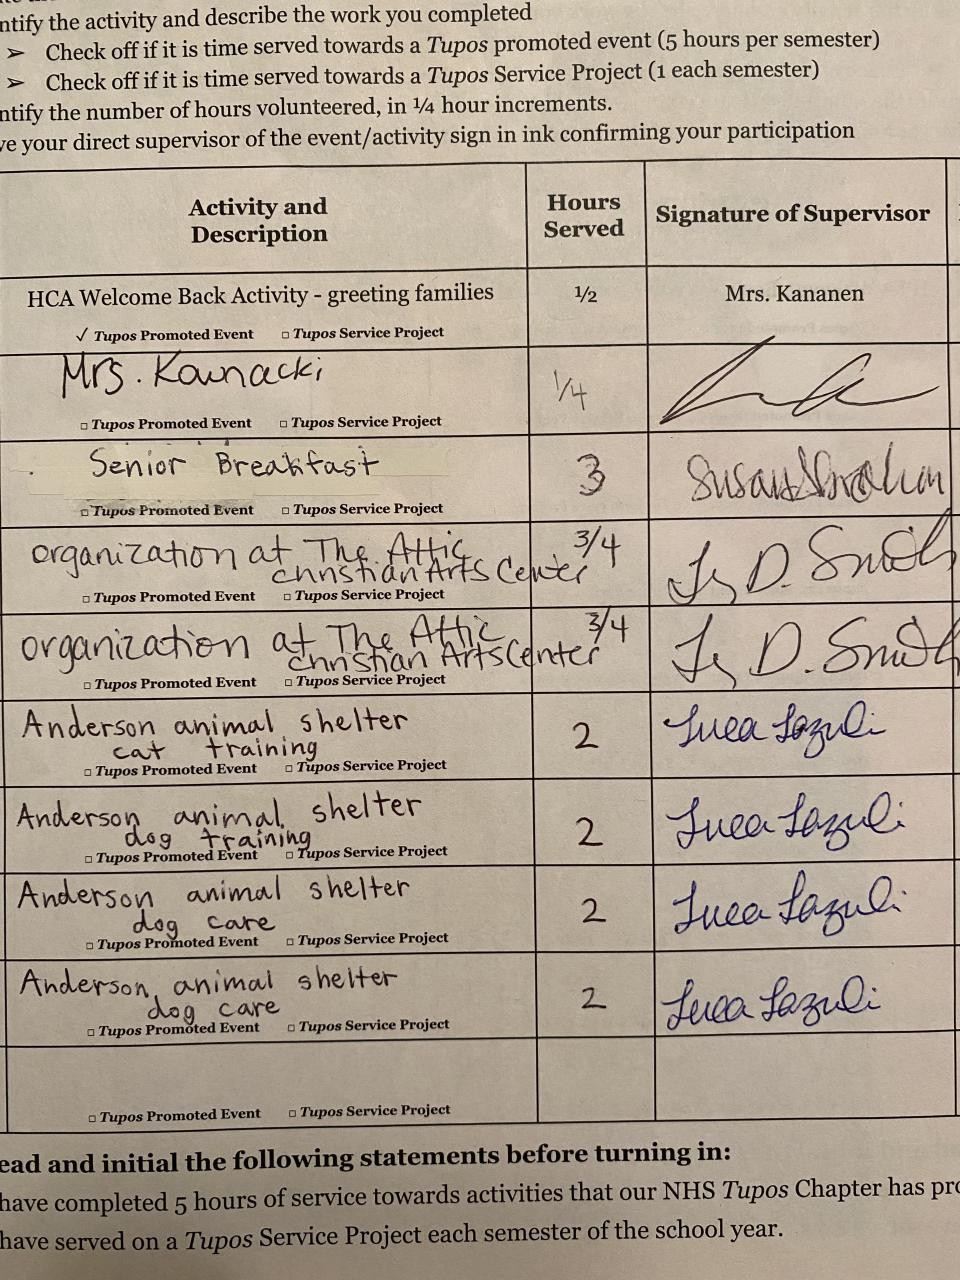 ntify the activity and describe the work you completed
➤ Check off if it is time served towards a Tupos promoted event (5 hours per semester)
➤ Check off if it is time served towards a Tupos Service Project (1 each semester)
ntify the number of hours volunteered, in ¼ hour increments.
ve your direct supervisor of the event/activity sign in ink confirming your participation
Activity and Description
Hours Served
Signature of Supervisor
HCA Welcome Back Activity - greeting families
½
Mrs. Kananen
✓ Tupos Promoted Event □ Tupos Service Project
Mrs. Kownacki
1/4
□ Tupos Promoted Event □ Tupos Service Project
Senior Breakfast
3
Susan
□ Tupos Promoted Event □ Tupos Service Project
organization at The Attic
Christian Arts Center
3/4
D. Smith
□ Tupos Promoted Event □ Tupos Service Project
organization at The Attic
Christian Arts Center
3/4
D. Smith
□ Tupos Promoted Event □ Tupos Service Project
Anderson animal shelter
cat training
2
Luca Lazuli
□ Tupos Promoted Event □ Tupos Service Project
Anderson animal shelter
dog training
2
Luca Lazuli
□ Tupos Promoted Event □ Tupos Service Project
Anderson animal shelter
dog care
2
Luca Lazuli
□ Tupos Promoted Event □ Tupos Service Project
Anderson animal shelter
dog care
2
Luca Lazuli
□ Tupos Promoted Event □ Tupos Service Project
□ Tupos Promoted Event □ Tupos Service Project
ead and initial the following statements before turning in:
have completed 5 hours of service towards activities that our NHS Tupos Chapter has pro
have served on a Tupos Service Project each semester of the school year.